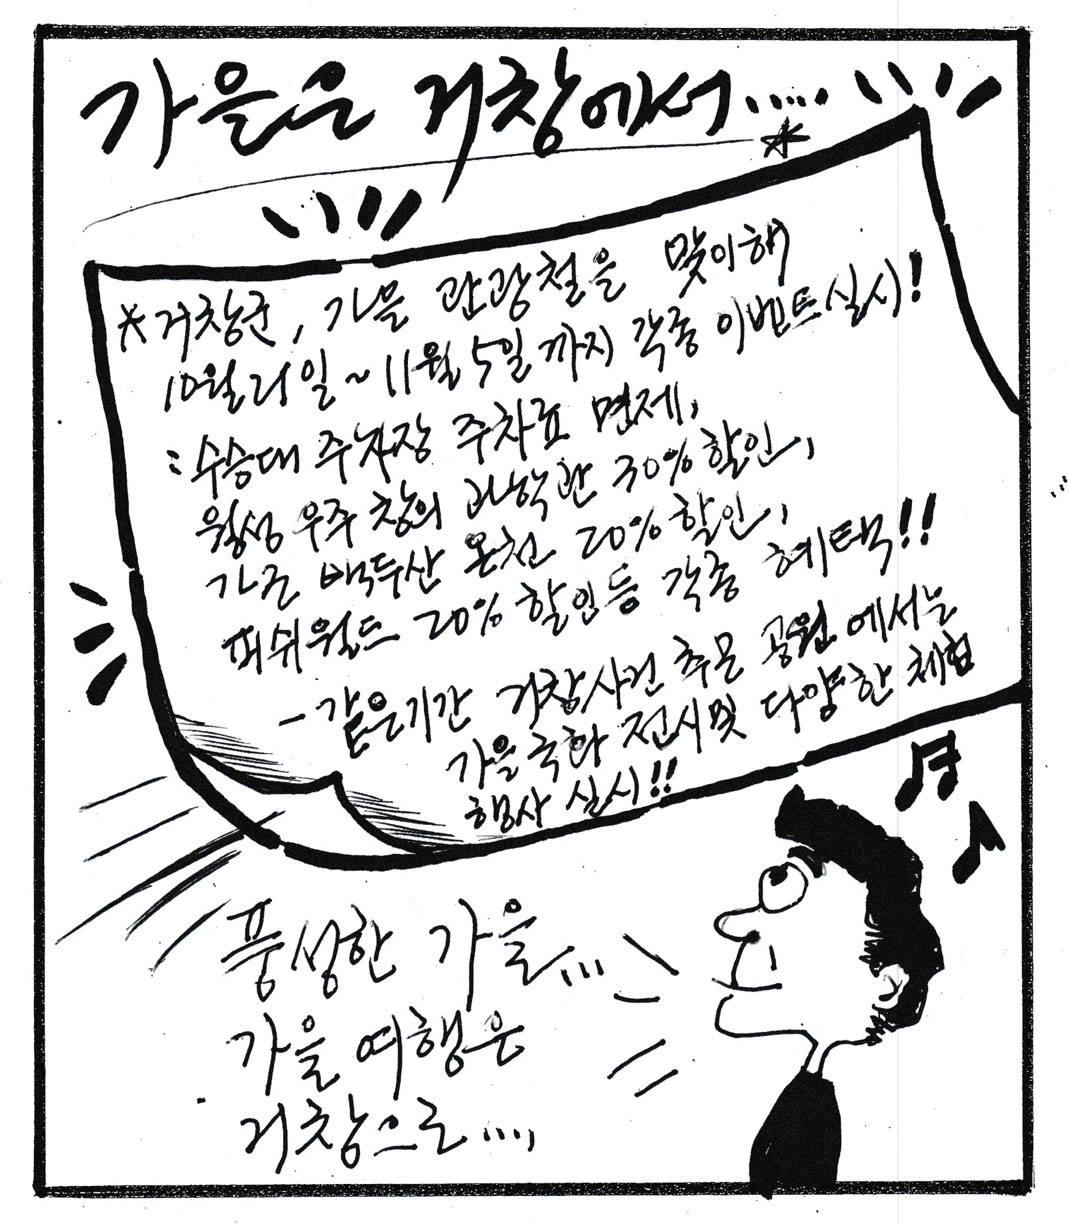 가을은 거창에서.....
*거창군, 가을 관광철을 맞이해
10월 21일~11월 5일까지 각종 이벤트실시!
: 수승대 주차장 주차료 면제,
월성 우주 창의 과학관 30% 할인,
가조 백두산 온천 20% 할인,
피쉬월드 20% 할인등 각종 혜택!!
- 같은기간 거창사건 추모 공원 에서는
가을 국화 전시및 다양한 체험
행사 실시!!
풍성한 가을...
가을 여행은
거창으로....,